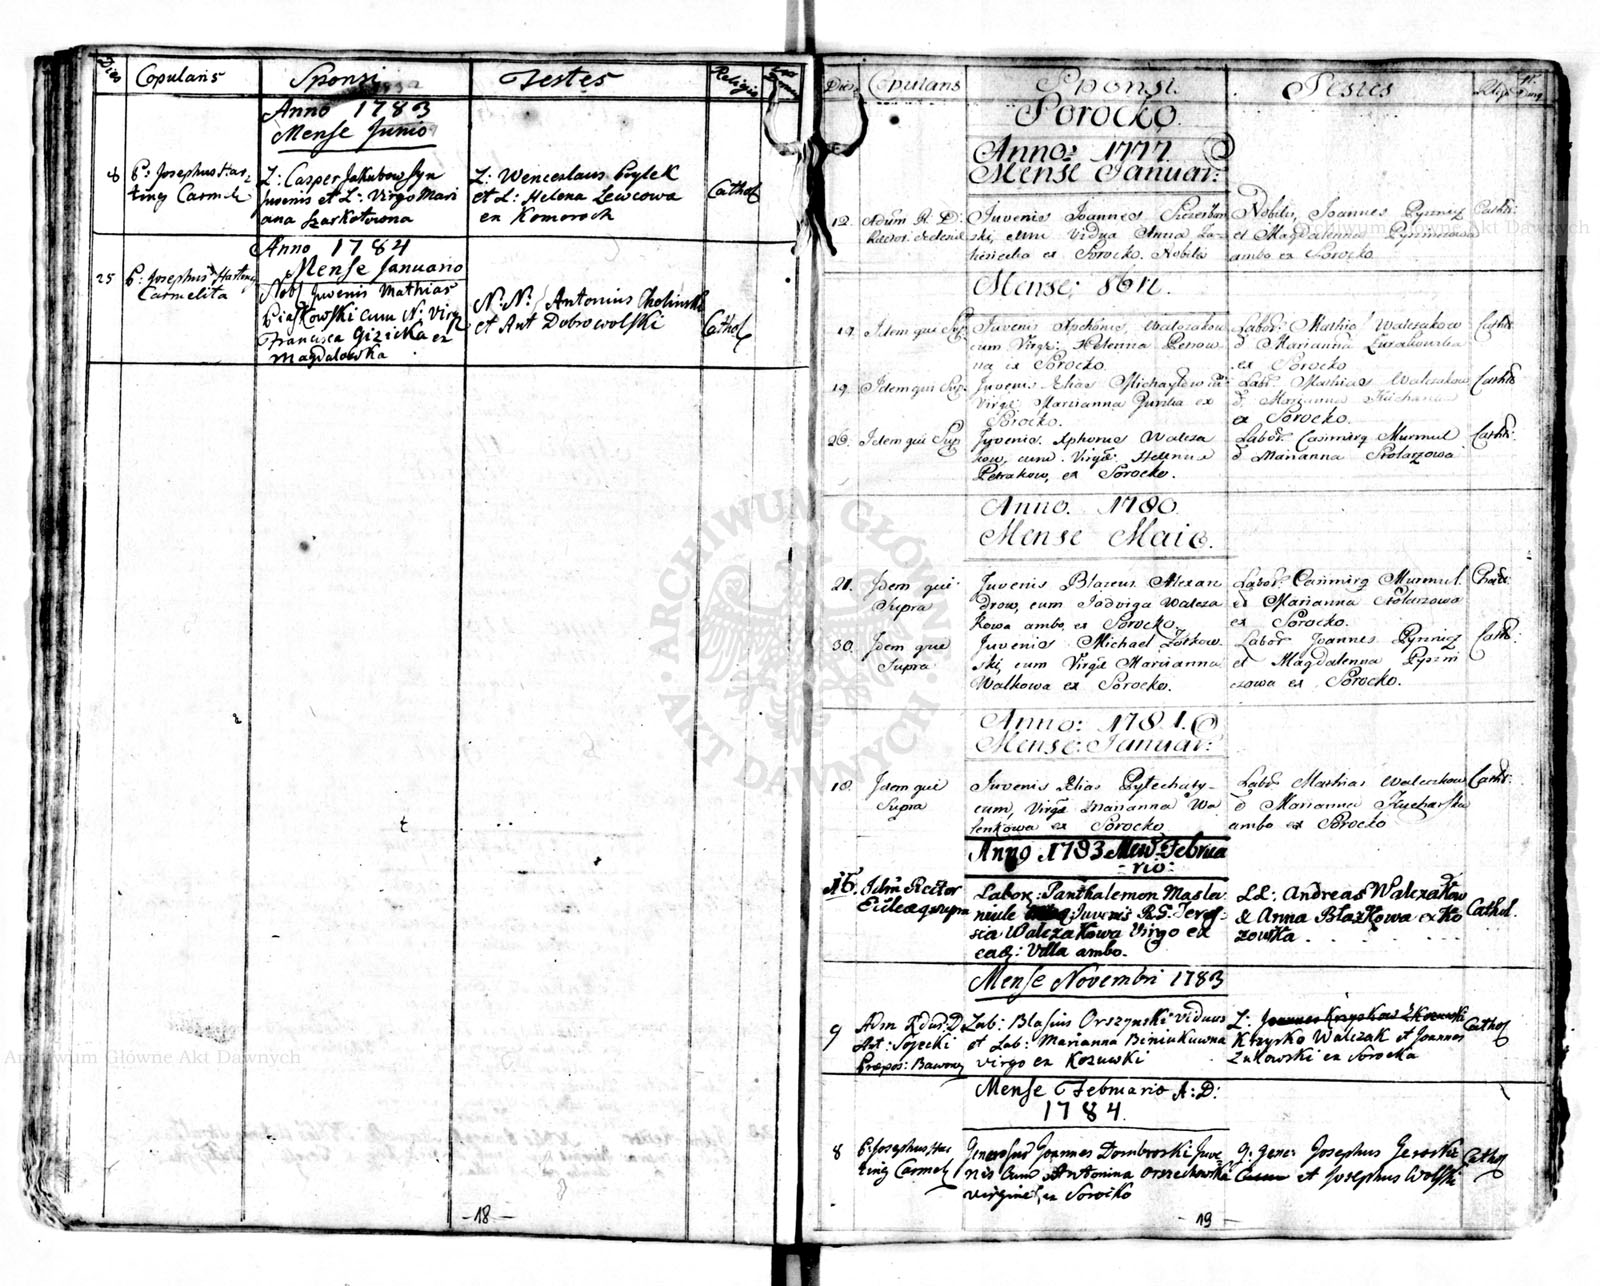 Dies Copulans Sponsi Testes Religio
Anno 1783
Mense Junio
8 P: Josephus Har-
ting Carmel
L: Casper Jakubow syn
juvenis et L: Virgo Mari
ana Szarkotowna
L: Wenceslaus
et L: Helena Lewcowa
ex Komoroch
Cathol
Anno 1784
Mense Januario
25 P: Josephus Harting
Carmelita
Nobl Juvenis Mathias
Piaskowski cum N: Virg
Francisca Gizicka ex
Magdalowka
N: N: Antonius Cholinski
et Ant Dobrowolski
Cathol
-18-
Dies Copulans Sponsi. Testes
Sorocko.
Anno: 1777.
Mense Januar:
12. Adum R D:
Rector Ecclesiae
Juvenis Joannes Szczerban
ski, cum Vidua Anna
ex Sorocko. Nobila
Nobiles, Joannes Pyznicz
et Magdalenna Pyzniczowa
ambo ex Sorocko
Cathti
Mense; 8bri.
17. Idem qui Sup
Juvenis Walczakow
cum Virgē: Helenna Petrow
na ex Sorocko.
Labor: Mathias Walczakow
Marianna Zurakowska
ex Sorocko
Catht:
19. Idem qui Sup:
Juvenis Elias Michaylow
Virgē Marianna ex
Sorocko.
Labr: Mathias Walczakow
Marianna Kucharska
ex Sorocko.
Catht:
26. Idem qui Sup
Juvenis. Walcza
kow, cum Virgē: Helenna
Petrakow, ex Sorocko.
Labor: Casimirg Murmul
Marianna Stolarzowa
Catht:
Anno. 1780.
Mense Maio.
21. Idem qui
Supra
Juvenis Blazeus Alexan
drow, cum Jadviga Walcza
kowa ambo, ex Sorocko.
Labor: Casimirg Murmul.
et Marianna Stolarzowa
ex Sorocko.
30. Idem que
Supra
Juvenis Michael Zołkow
ski, cum Virgē Marianna
Walkowa ex Sorocko.
Labor Joannes Pyznicz
et Magdalenna Pyzni
czowa ex Sorocko.
Cath:
Anno: 1781.
Mense: Januar:
18. Idem qui
Supra
Juvenis Elias Pylechaty-
cum, Virgē Marianna Wa
lenkowa ex Sorocko
Labr Mathias Walczakow
Marianna Kucharska
ambo ex Sorocko
Catht:
Anno 1783 Men: Februa
-rio-
15. Idm Rector
Eccleae qsupra
Labor: Panthalemon Masla
niule Juvenis R.G. Teres-
sia Walczakowa Virgo ex
eadz: Villa ambo.
LL: Andreas Walczakow
& Anna Blazkowa ex Ko
zowka
Cathol.
Mense Novembri 1783
9 Adm Rdus: D
Ant: Sojecki
Prepos: Baworo
Lab: Blasius Orszynski viduus
et Lab: Marianna Beniukuwna
virgo ex Kozuwki
L:
Krzysko Walczak et Joannes
Zulowski ex Sorocka
Cathol
Mense Februario A: D:
1784.
8 P: Josephus Har
ting Carmel
Generosus Joannes Dombroski Juve
nis Cum Antonina Orzechowska
virgine, ex Sorocko
G: Gener Josephus Jezoski
et Josephus Wolski
Cathol
-19-
ARCHIWUM GŁÓWNE AKT DAWNYCH
Archiwum Główne Akt Dawnych
Archiwum Główne Akt Dawnych